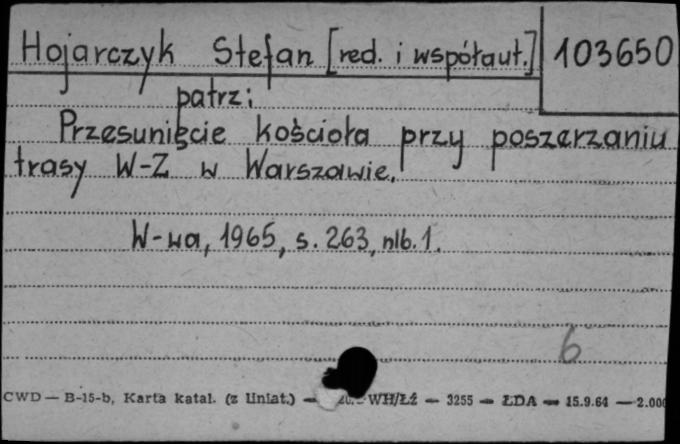 Hojarczyk Stefan [red. i współaut.] 103650
patrz:
Przesunięcie kościoła przy poszerzaniu
trasy W-Z w Warszawie.
W-wa, 1965, s. 263, nlb. 1.
6
CWD — B-15-b, Karta katal. (z liniat.) — WH/ŁŹ — 3255 — ŁDA — 15.9.64 — 2.000